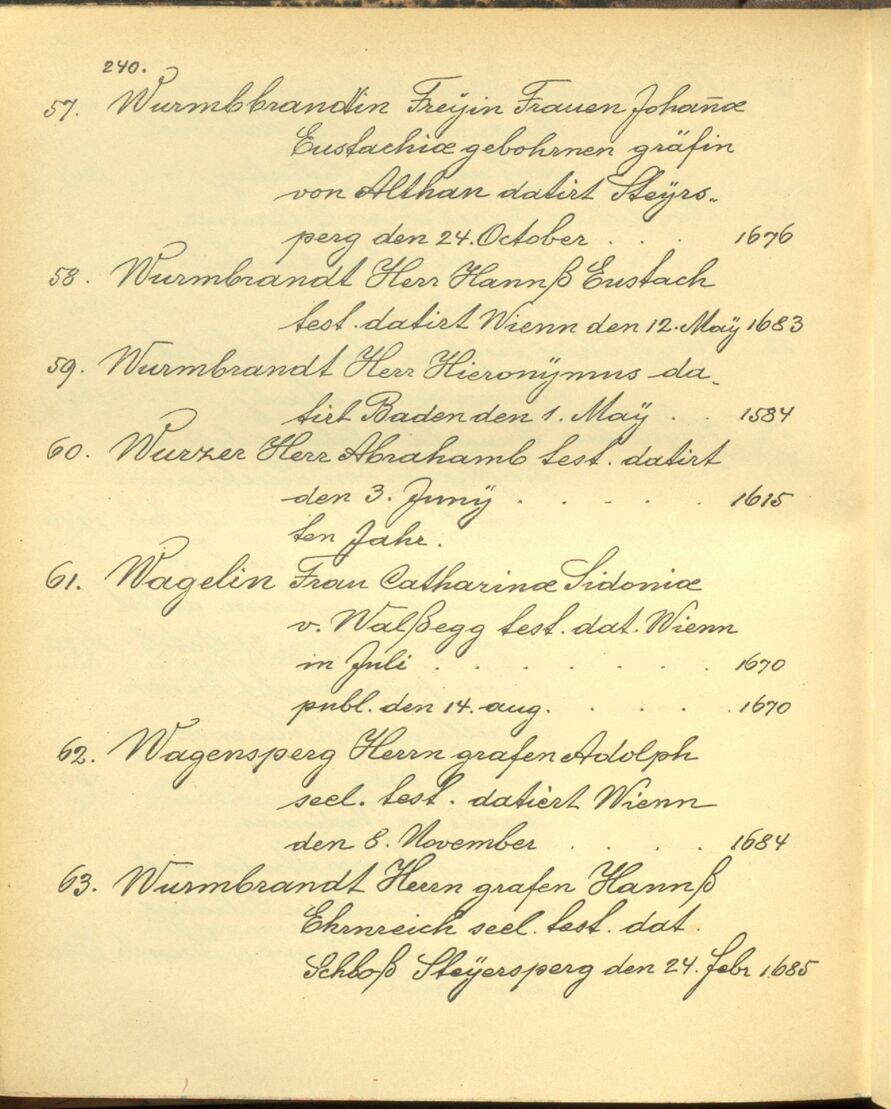 240.
57. Wurmbbrandtin Freÿin Frauen Johan̄æ
Eustachiæ gebohrnen gräfin
von Althan datirt Steÿrs-
perg den 24. October . . . 1676
58. Wurmbrandt Herr Hannß Eustach
test. datirt Wienn den 12. Maÿ 1683
59. Wurmbrandt Herr Hieronÿmus da-
tirt Baden den 1. Maÿ . . 1584
60. Wurzer Herr Abrahamb test. datirt
den 3. Junÿ . . . . . 1615
ten Jahr.
61. Wagelin Frau Catharinæ Sidoniæ
v. Walßegg test. dat. Wienn
in Juli . . . . . . 1670
publ. den 14. aug. . . . . 1670
62. Wagensperg Herrn grafen Adolph
seel. test. datiert Wienn
den 8. November . . . . 1684
63. Wurmbrandt Herrn grafen Hannß
Ehrnreich seel. test. dat.
Schloß Steÿersperg den 24. febr 1685